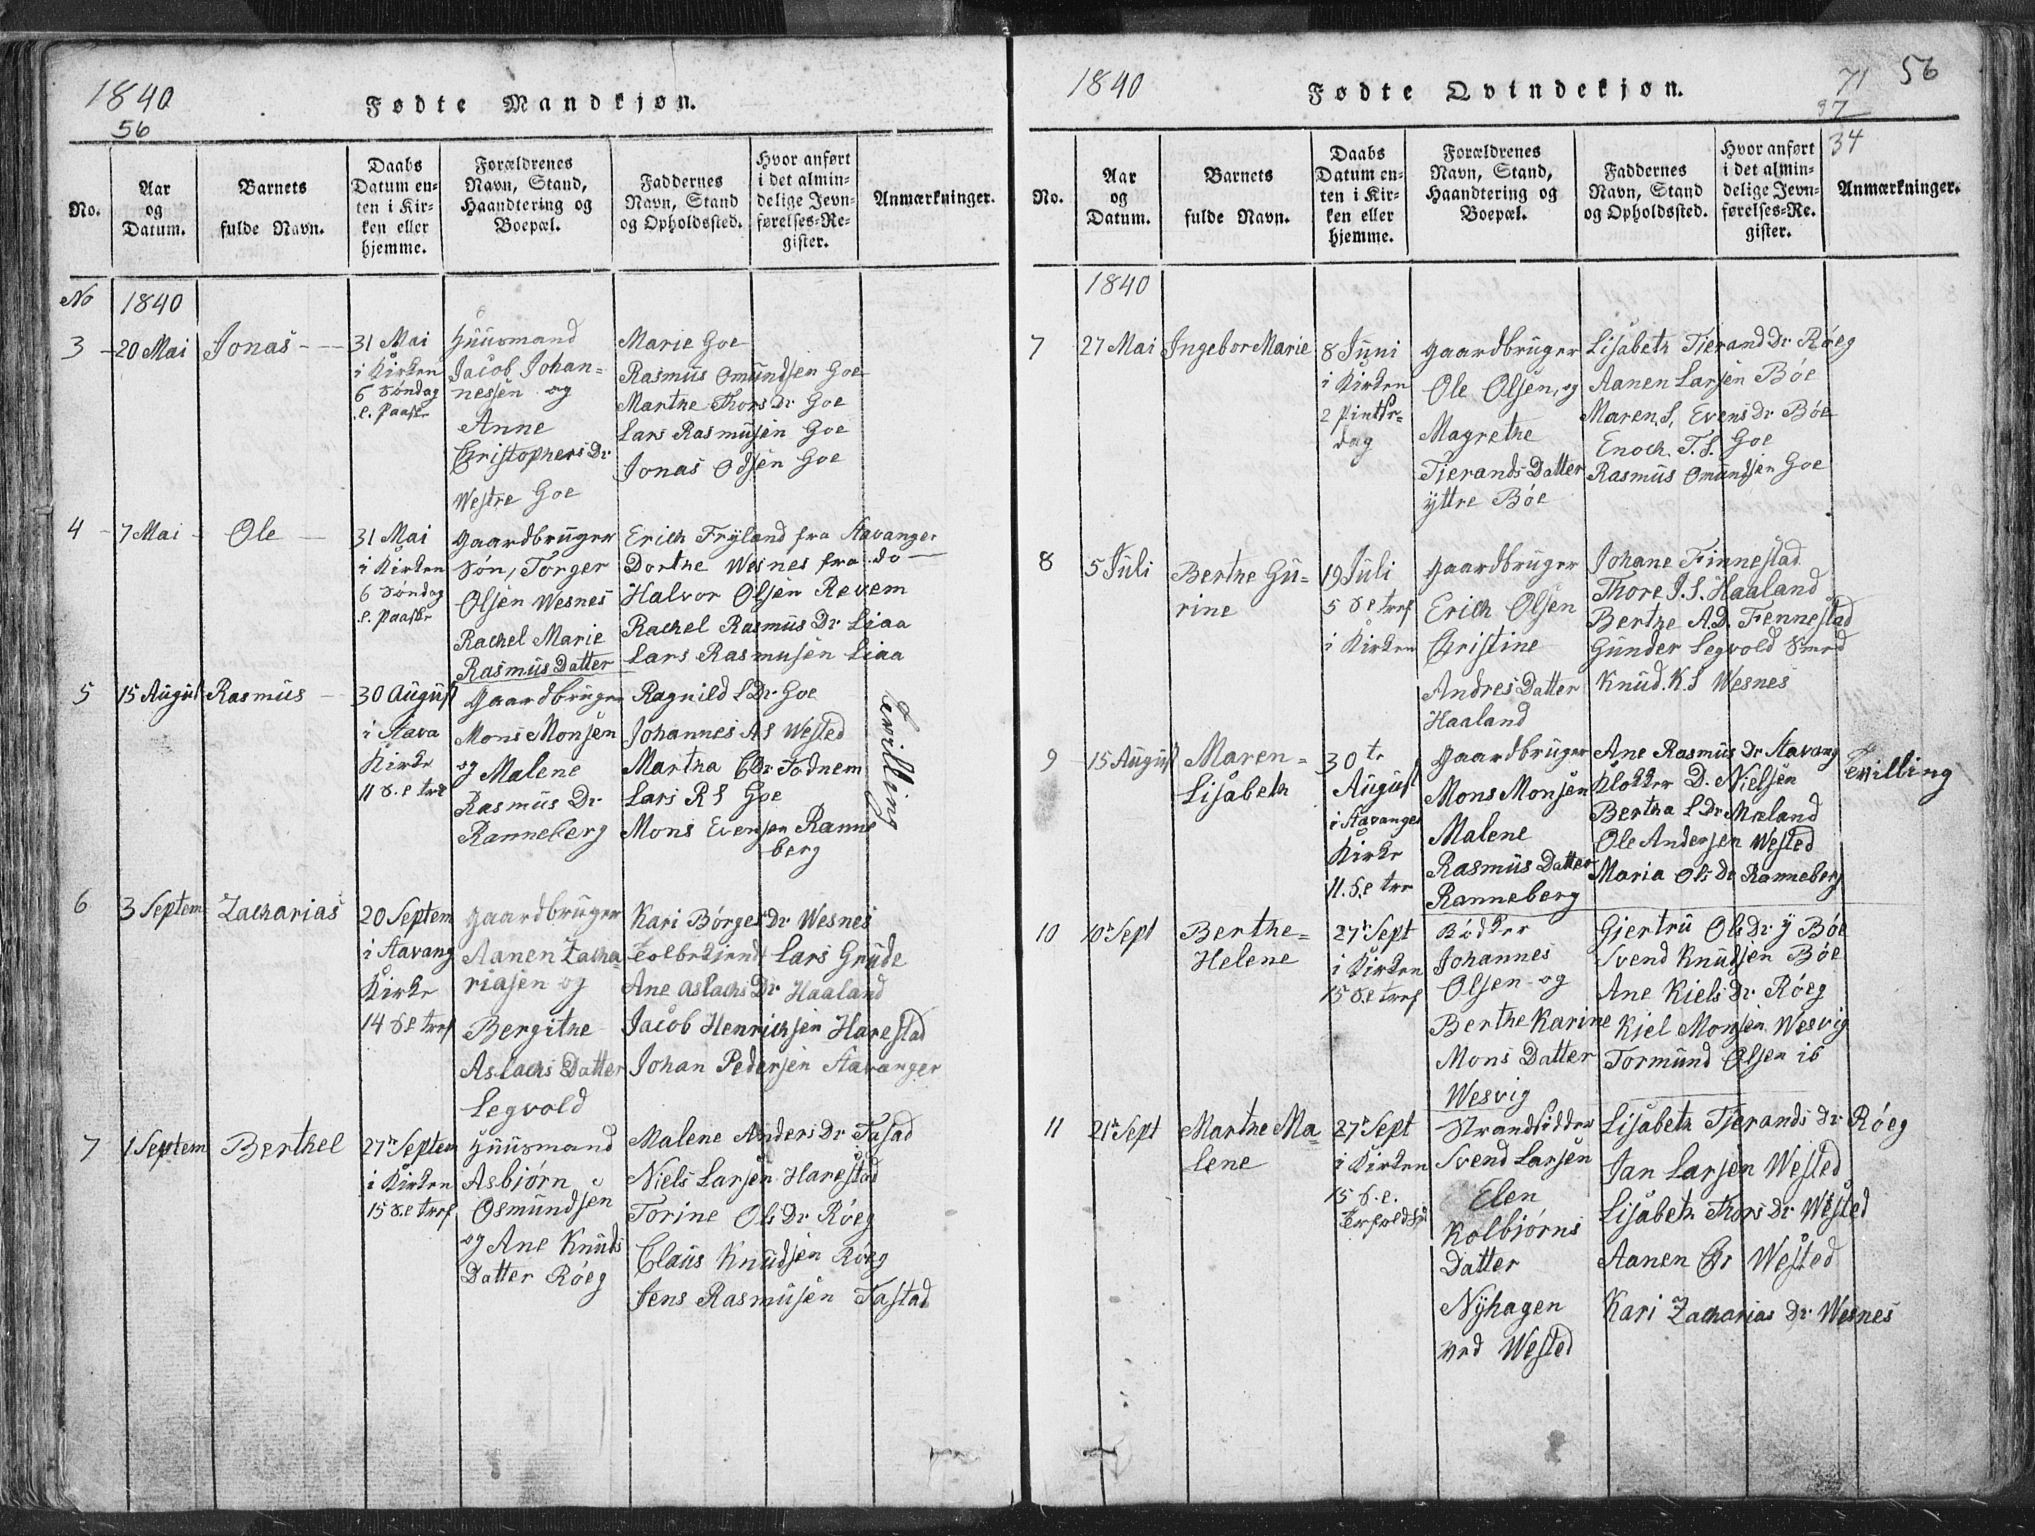 1840
56
Fødte Mandkjøn.
No.
Aar og Datum.
Barnets fulde Navn.
Daabs Datum enten i Kirken eller hjemme.
Forældrenes Navn, Stand, Haandtering og Boepæl.
Faddernes Navn, Stand og Opholdssted.
Hvor anført i det almindelige Jevnførelses-Register.
Anmærkninger.
No 1840
3 20 Mai Jonas
31 Mai
i Kirken
6 Søndag
e. Paaske
Huusmand
Jacob Johan=
nessen og
Anne
Christophers Dr
Westre Goe
Marie Goe
Rasmus Omundsen Goe
Marthe Thors Dr Goe
Lars Rasmusen Goe
Jonas Odsen Goe
4 7 Mai Ole
31 Mai
i Kirken
6 Søndag
e. Paaske
Gaardbruger
Søn, Torger
Olsen Wesnes
Rachel Marie
Rasmus Datter
Erich Fryland fra Stavanger
Dorthe Wesnes fra do
Halvor Olsen Revem
Rachel Rasmus Dr Liaa
Lars Rasmusen Liaa
5 15 August Rasmus
30 August
i Stava
Kirke
11 S. e tre
Gaardbruger
Mons Monsen
og Malene
Rasmus Dr
Ranneberg
Ragnild L Dr Goe
Johannes A S Wested
Martha C Dr Todnem
Lars R S Goe
Mons Evensen Ranne
berg
Tvilling
6 3 Septem Zacharias
20 Septem
i Stavang
Kirke
14 S e tref
Gaardbruger
Aanen Zacha
riasen og
Bergithe
Aslachs Datter
Legvold
Kari Børges Dr Wesnes
Lars Grude
Ane Aslachs Dr Haaland
Jacob Henrichsen Harestad
Johan Pedersen Stavanger
7 1 Septem Berthel
27r Septem
i Kirken
15 S.e tref
Huusmand
Asbiørn
Osmundsen
og Ane Knuds
Datter Røeg
Malene Anders Dr Tastad
Niels Larsen Harestad
Torine Ols Dr Røeg
Claus Knudsen Røeg
Jens Rasmusen Tastad
1840
Fødte Qvindekjøn.
71 56
37
34
No.
Aar og Datum.
Barnets fulde Navn.
Daabs Datum enten i Kirken eller hjemme.
Forældrenes Navn, Stand, Haandtering og Boepæl.
Faddernes Navn, Stand og Opholdssted.
Hvor anført i det almindelige Jevnførelses-Register.
Anmærkninger.
1840
7 27 Mai Ingebor Marie
8 Juni
i Kirken
2 Pintse=
dag
Gaardbruger
Ole Olsen, og
Magrethe
Tjerands Datter
yttre Bøe
Lisabeth Tjerand Dr Røeg
Aanen Larsen Bøe
Maren S, Evens Dr Bøe
Enoch. T. S. Goe
Rasmus Omundsen Goe
8 5 Juli Berthe Gu=
rine
19 Juli
5 S e tref
i Kirken
Gaardbruger
Erich Olsen
Christine
Andres Datter
Haaland
Johane Finnestad
Thore J. S. Haaland
Berthe A.D. Fennestad
Gunder Legvold
Knud. K. S Wesnes
9 15 August Maren=
Lisabeth
30te
August
i Stavanger
Kirke
11. S. e tre
Gaardbruger
Mons Monsen
Malene
Rasmus Datter
Ranneberg
Ane Rasmus Dr Stavang
Klokker D. Nielsen
Bertha L Dr Mæland
Ole Andersen Wested
Maria Ols Dr Ranneberg
Tvilling
10 10r Sept Berthe=
Helene
27r Sept
i Kirken
15 S e tref
Bødker
Johannes
Olsen og
Berthe Karine
Mons Datter
Wesvig
Gjertru Ols Dr y Bøe
Svend Knudsen Bøe
Ane Kiels Dr Røeg
Kiel Monsen Wesvig
Tormund Olsen ib
11 21r Sept Marthe Ma
lene
27r Sept
i Kirken
15 S. e.
Strandsidder
Svend Larsen
Elen
Kolbiørns
Datter
Nyhagen
ved Wested
Lisabeth Tjerands Dr Røeg
Jan Larsen Wested
Lisabeth Thors Dr Wested
Aanen Chr Wested
Kari Zacharias Dr Wesnes